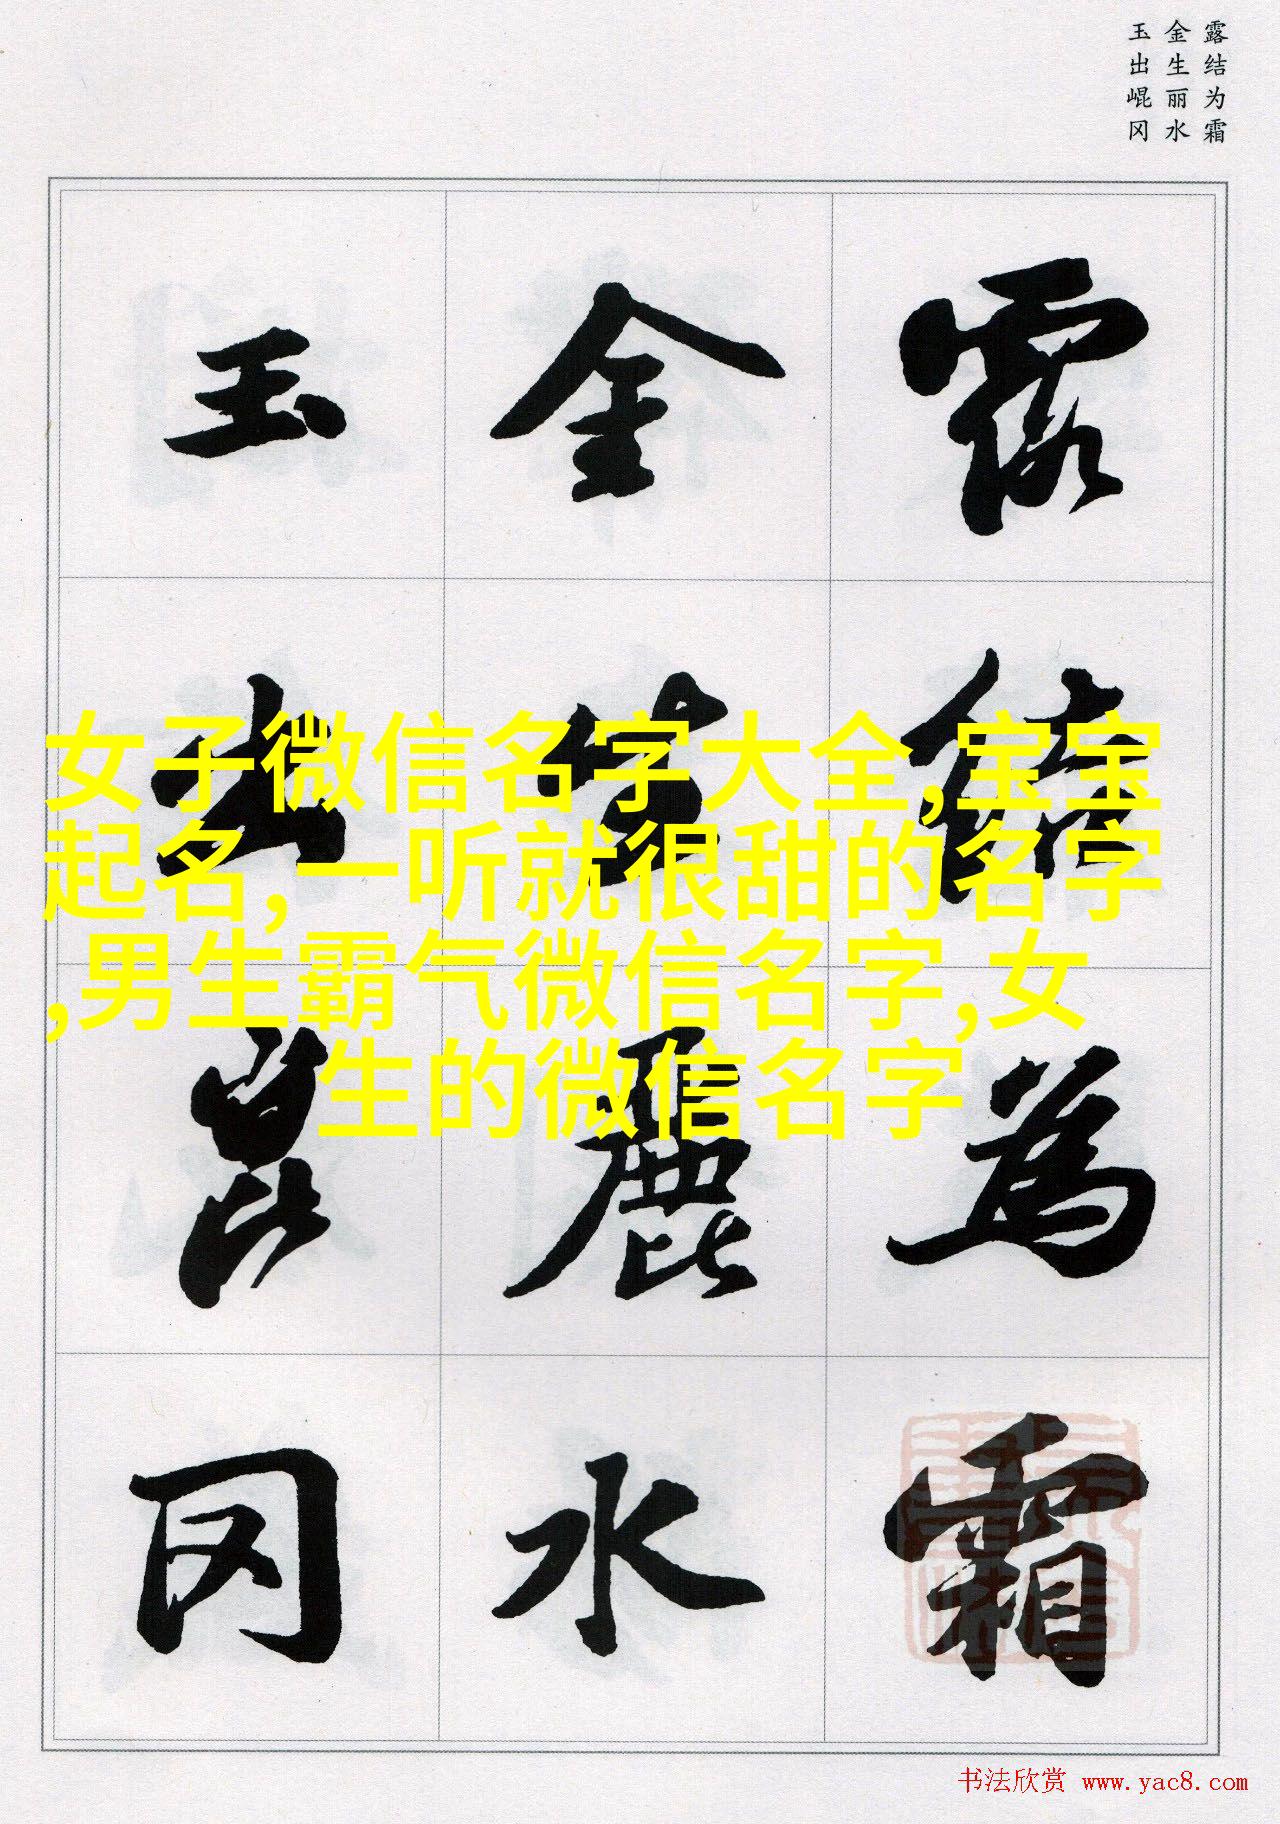 露结为霜
金生丽水
玉出崐冈
露結為霜
金生麗水
玉出崑冈
女子微信名字大全,宝宝
起名,一听就很甜的名字
,男生霸气微信名字,女
生的微信名字
书法欣赏 www.yac8.com